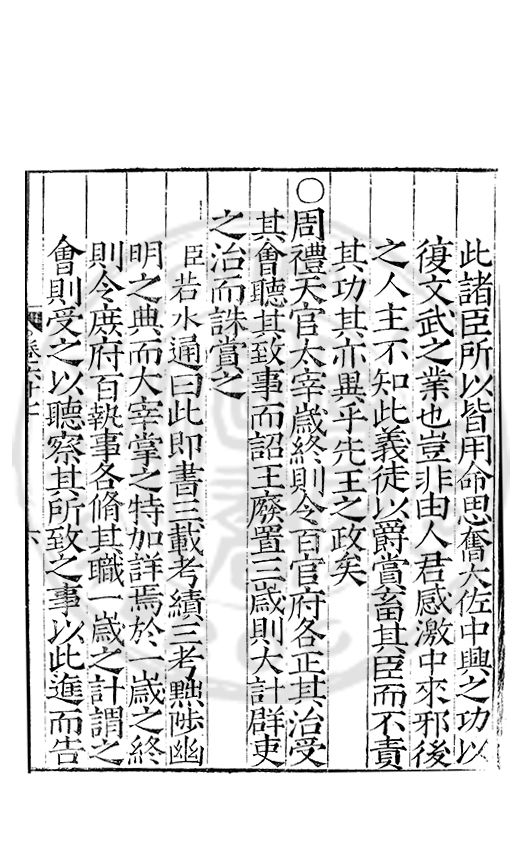 此諸臣所以皆用命思奮大佐中興之功以
復文武之業也豈非由人君感激中來邪後
之人主不知此義徒以爵賞畜其臣而不責
其功其亦異乎先王之政矣
〇周禮天官太宰歲終則令百官府各正其治受
其會聽其致事而詔王廢置三歲則大計群吏
之治而誅賞之
臣若水通曰此即書三載考績三考黜陟幽
明之典而大宰掌之特加詳焉於一歲之終
則令庶府百執事各脩其職一歲之計謂之
會則受之以聽察其所致之事以此進而告
六